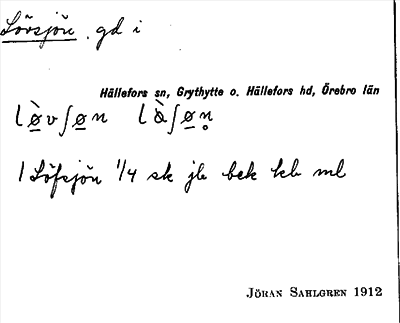 Lövsjön. gd i
Hällefors sn, Grythytte o. Hällefors hd, Örebro län
lø̀vʃøn là̊ʃøn̥
1 Löfsjön 1/4 sk jb bek kb ml
JÖRAN SAHLGREN 1912